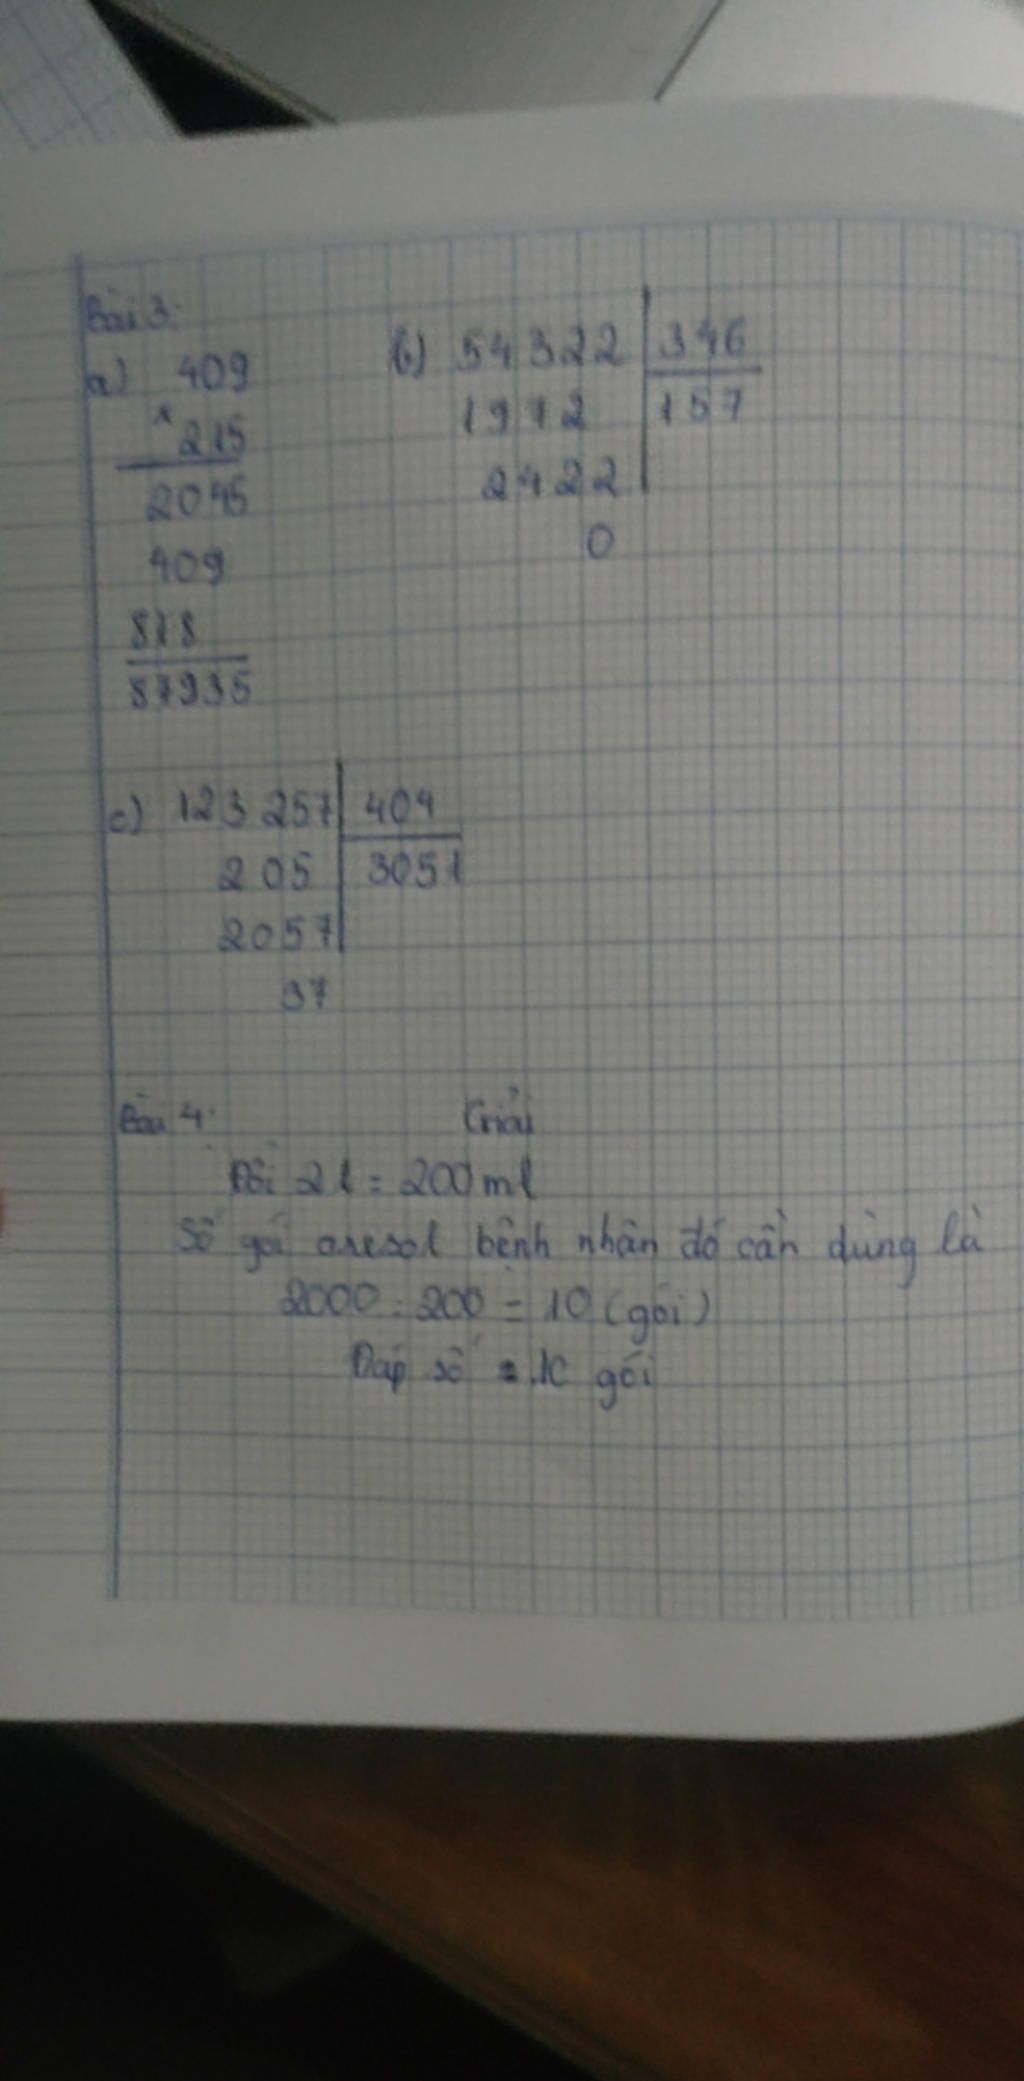 Bài 3:
a) 409
× 215
2045
409
818
87935
b) 54322 346
1972 157
2422
0
c) 123 257 404
205 3051
2057
37
Bài 4: Giải
Đổi 2l = 200ml
Số gói oresol bệnh nhân đó cần dùng là
2000 : 200 = 10 (gói)
Đáp số : 10 gói